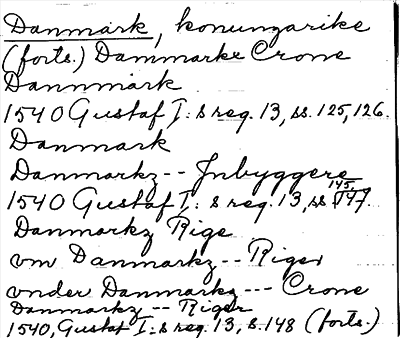 Danmark, konungarike
(forts.) Danmarke Crone
Dannmark
1540 Gustaf I:s reg. 13, ss. 125, 126.
Danmark
Danmarkz -- Jnbyggere
1540 Gustaf I:s reg. 13, ss 145, 147.
Danmarkz Rige
vm Danmarkz --- Riger
vnder Danmarkz --- Crone
Danmarkz -- Riger
1540, Gustaf I:s reg. 13, s. 148 (forts.)